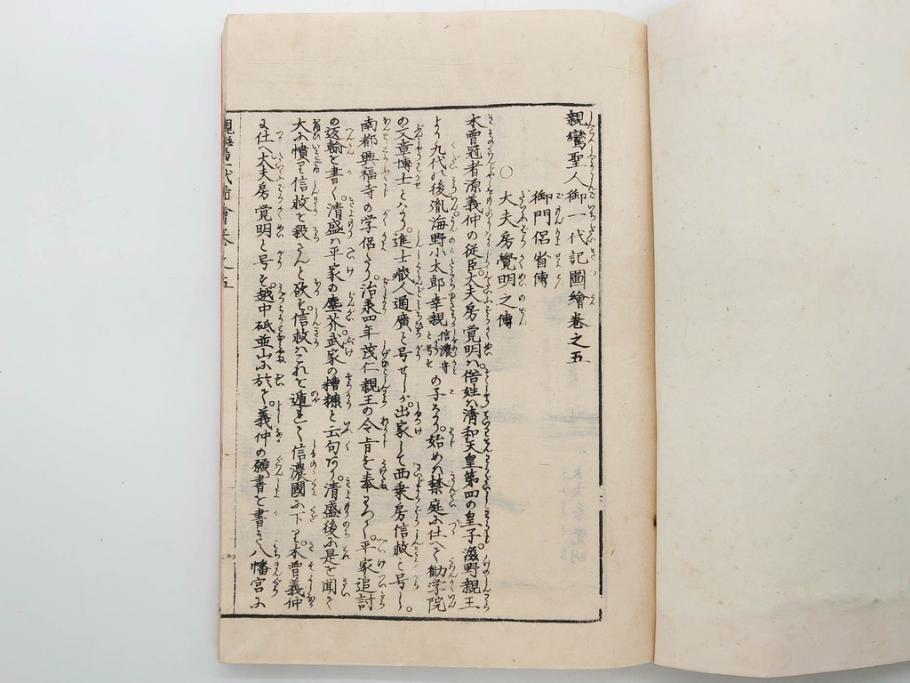 親鸞聖人御一代記圖繪卷之五
御門侶省傳
○
大夫房覺明之傳
木曾冠者源義仲の従臣。大夫房覚明ハ俗姓ハ清和天皇第四の皇子。滋野親王
より九代の後流海野小太郎幸親信濃守と号をの子なり。始めハ禁庭に仕へて勧学院
の文章博士となり。進士蔵人通廣と号せしが。出家して西乗房信救と号し。
南都興福寺の学侶たり。治承四年茂仁親王の令旨を奉ハつて。平家追討
の返翰を書く。清盛ハ平家の塵芥武家の糟糠と云句あり。清盛後に是を聞て
大に憤り信救を殺さんと欲を。信救ハこれを遁れて信濃國に下り。木曽義仲
に仕へ大夫房覚明と号を。越中砥並山に於て。義仲の願書を書き。八幡宮に
親鸞一代圖會卷之五